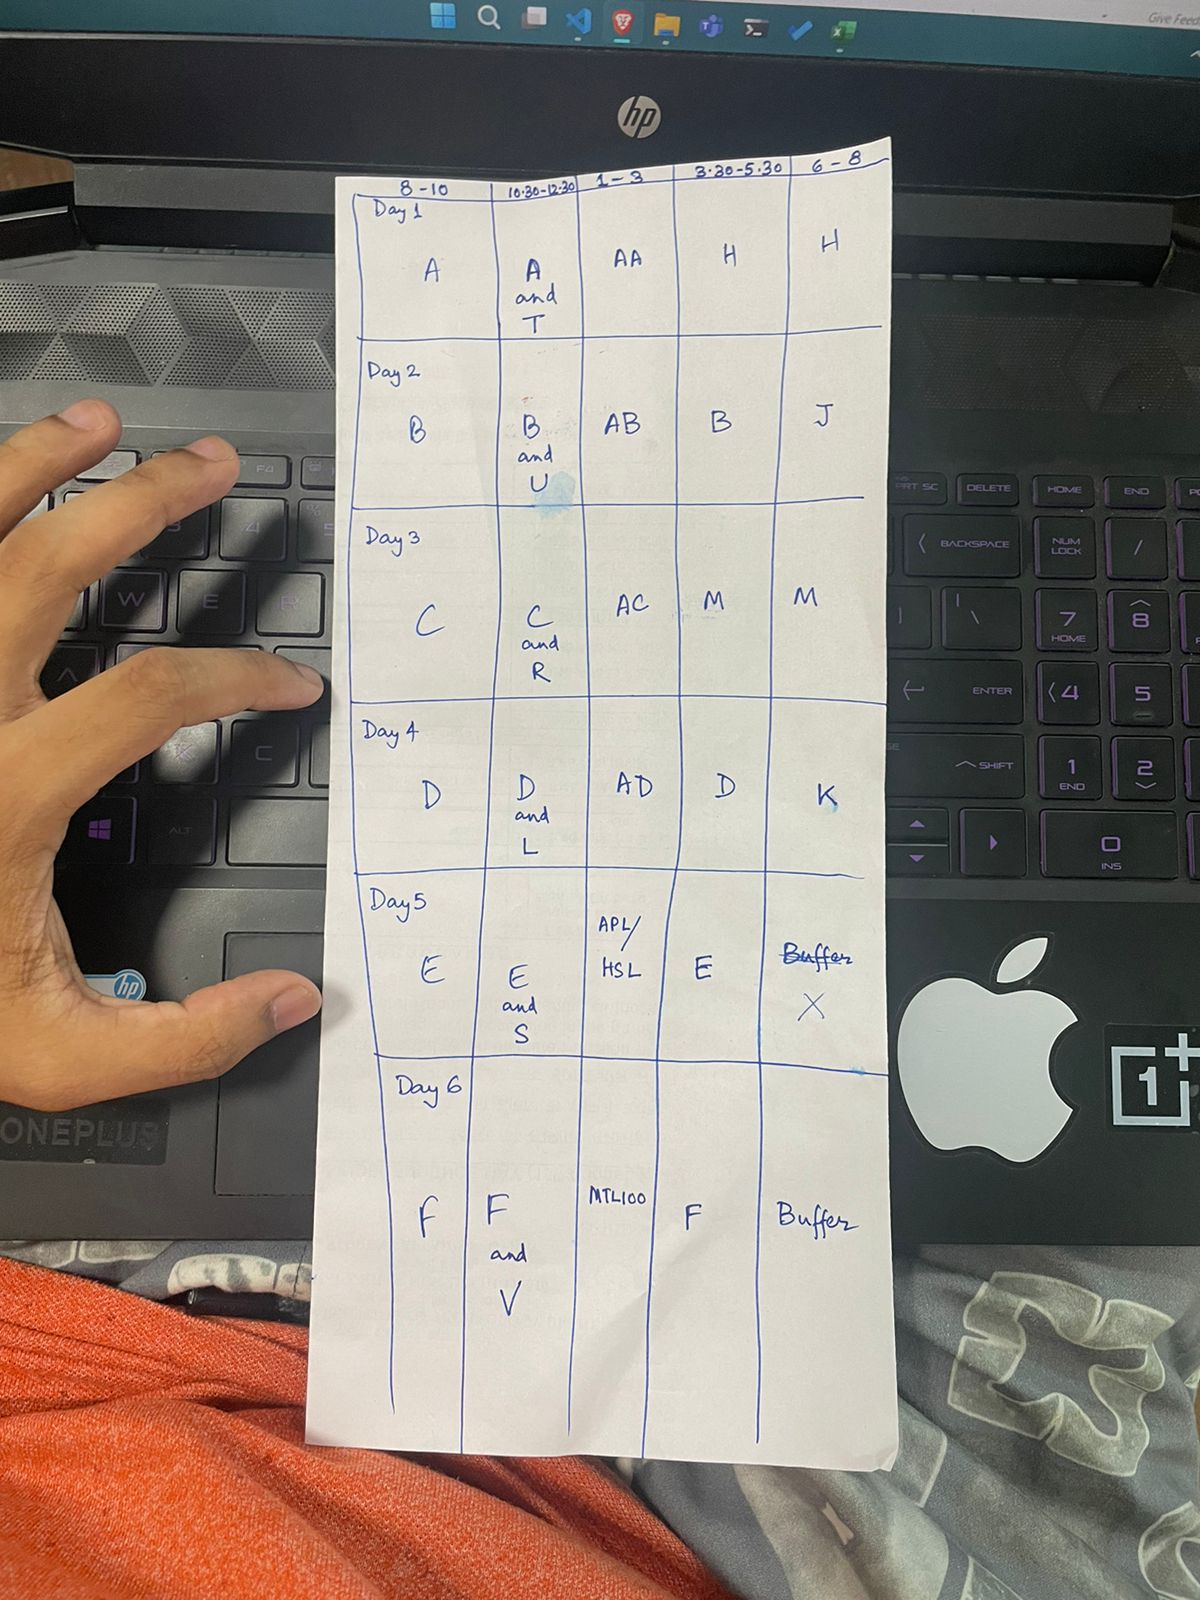 Give Feed
hp
8-10 10.30-12.30 1-3 3.30-5.30 6-8
Day 1
A A and T AA H H
Day 2
B B and U AB B J
Day 3
C C and R AC M M
Day 4
D D and L AD D K
Day 5
E E and S APL/ HSL E Buffer X
Day 6
F F and V MTL100 F Buffer
F4
PRT SC DELETE HOME END
3 4 5
BACKSPACE NUM LOCK /
W E R
7 HOME 8
ENTER 4 5
X C
SHIFT 1 END 2
ALT
0 INS
hp
ONEPLUS
1+